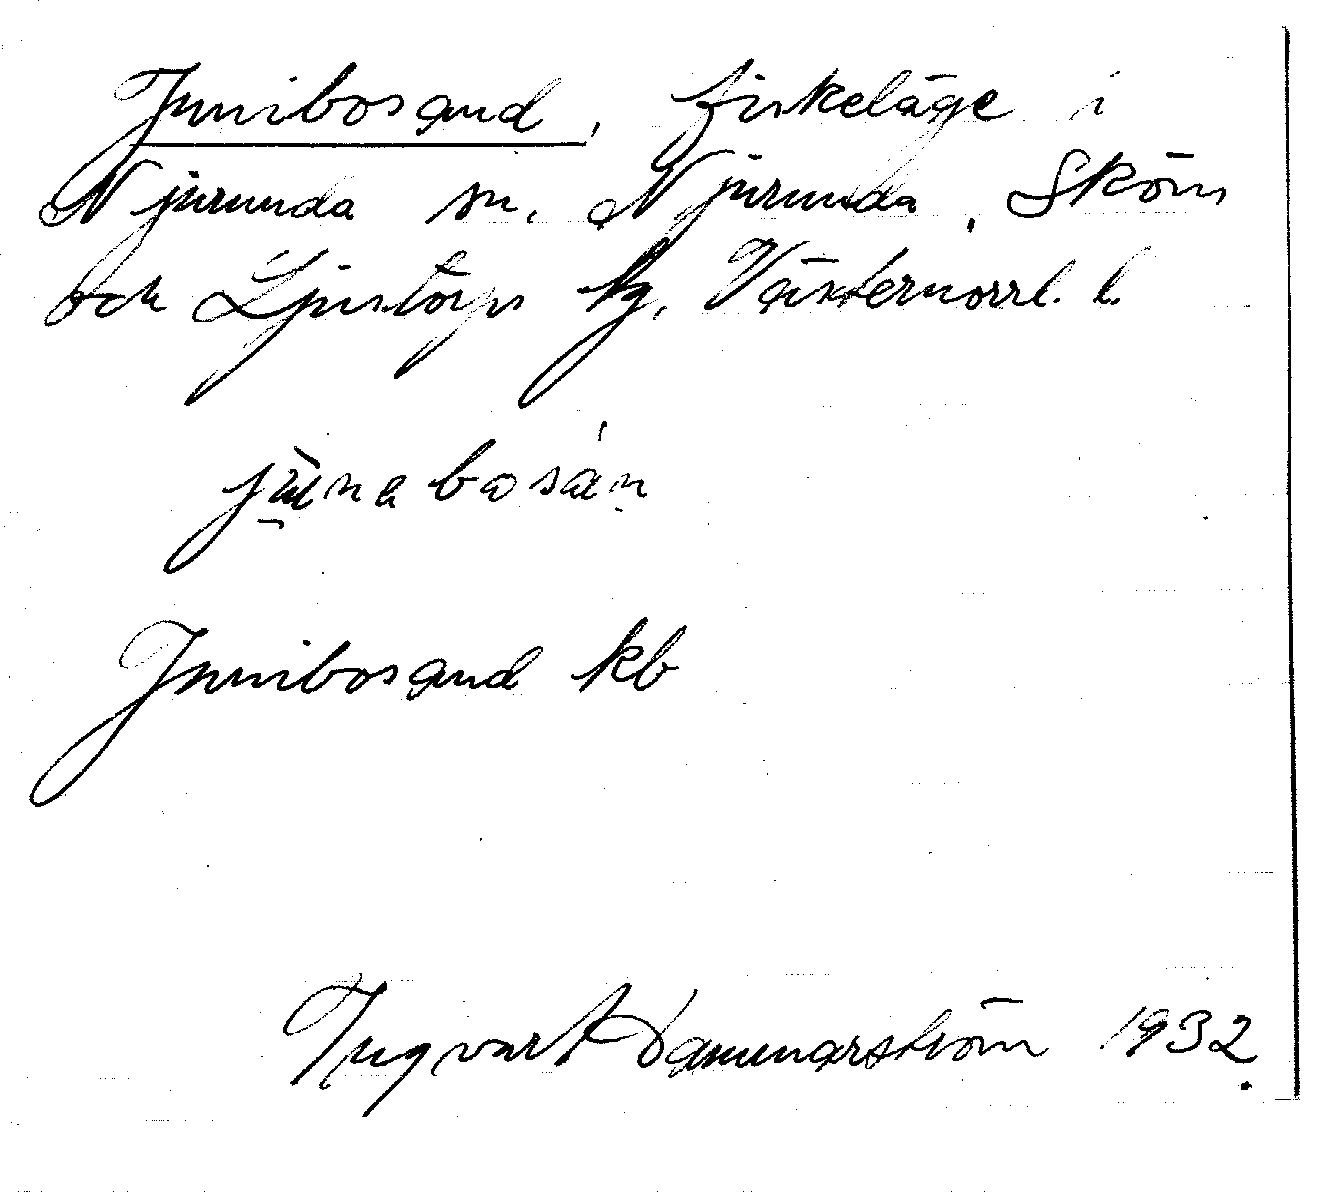 Junibosand, fiskeläge i
Njurunda sn, Njurunda, Sköns
och Ljustorps tg, Västernorrl. l.
Junibosand kb
Ingvart Dammarström 1932.